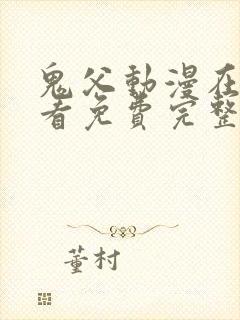 鬼父動漫在
看免費完整
董村